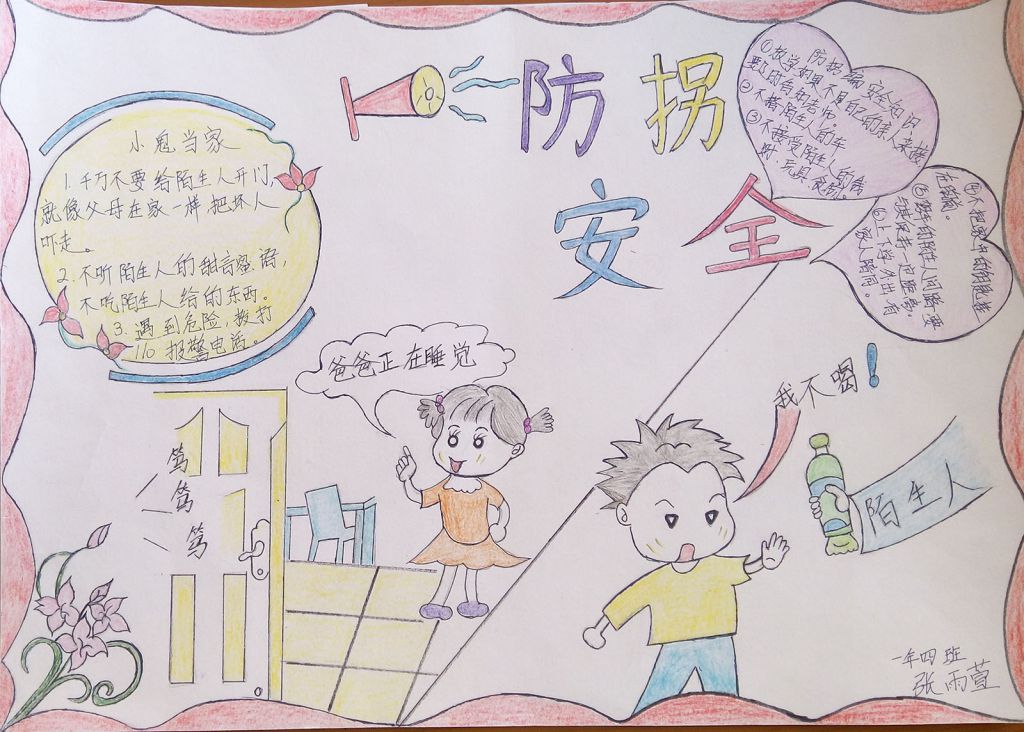 防拐
安全
小鬼当家
1.千万不要给陌生人开门,
就像父母在家一样,把坏人
吓走。
2.不听陌生人的甜言蜜语,
不吃陌生人给的东西。
3.遇到危险,拨打
110报警电话。
防拐骗安全知识
①放学如果不是自己的亲人来接
要及时告知老师
②不搭陌生人的车
③不接受陌生人的钱
财、玩具、食物。
④不把家中的钥匙挂
在
⑤
与其保持一定距离
⑥上下学、外出,有
家人陪同。
爸爸正在睡觉
笃
笃
笃
我不喝!
陌生人
一年四班
张雨萱